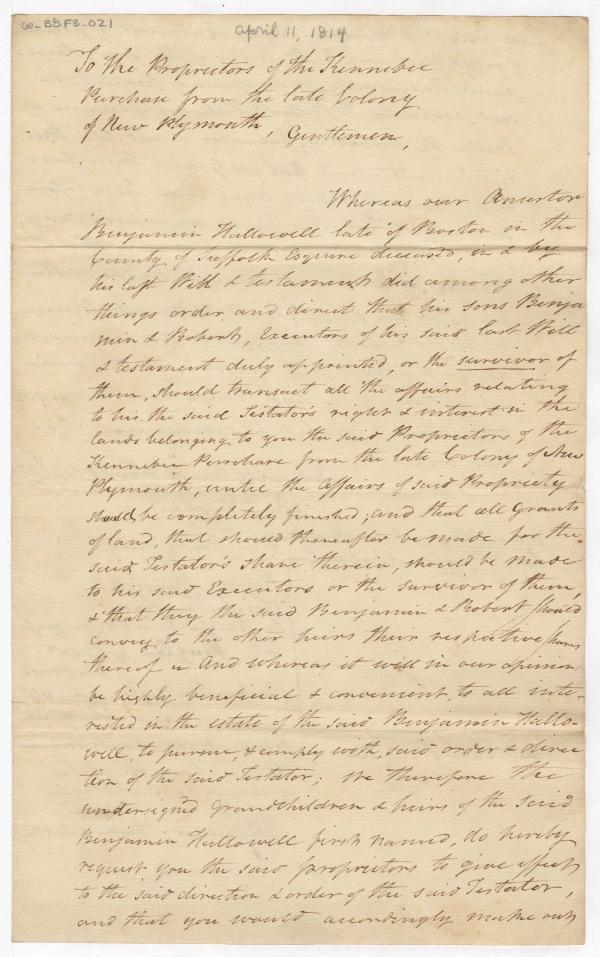 60-B8F3-021
April 11, 1814
To the Proprietors of the Kennebec
Purchase from the late Colony
of New Plymouth, Gentlemen,
Whereas our Ancestor
Benjamin Hallowell late of Boston in the
County of Suffolk Esquire deceased, in & by
his last Will & testament did among other
things order and direct that his sons Benja
min & Robert, Executors of his said last Will
& testament duly appointed, or the survivor of
them, should transact all the affairs relating
to his the said Testator's right & interest in the
lands belonging to you the said Proprietors of the
Kennebec Purchase from the late Colony of New
Plymouth, until the Affairs of said Propriety
should be completely finished; and that all Grants
of land, that should thereafter be made for the
said Testator's share therein, should be made
to his said Executors or the survivor of them,
& that they the said Benjamin & Robert should
convey to the other heirs their respective shares
thereof And whereas it will in our opinion
be highly beneficial & convenient to all inte-
rested in the estate of the said Benjamin Hallo-
well, to pursue, & comply with, said order & direc
tion of the said Testator; We therefore the
undersigned Grandchildren & heirs of the said
Benjamin Hallowell first named, do hereby
request you the said proprietors to give effect
to the said direction & order of the said Testator,
and that you would accordingly make out